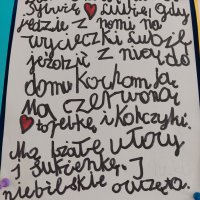 Sylwię ♥ lubię gdy
jeździ z nami na
wycieczki Lubię
jeździć z nią do
domu kocham ją
Ma czerwoną
♥ torebkę i kolczyki.
Ma białe włosy
i sukienkę. I
niebieskie oczęta.